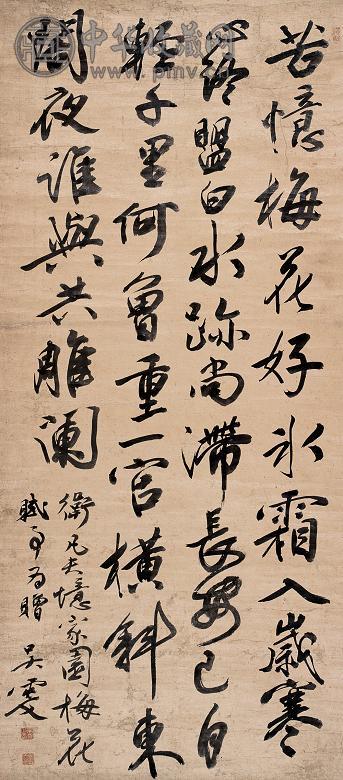 苦憶梅花好冰霜入歲寒
心終盟白水跡尚滯長安已自
輕千里何曾重一官橫斜東
閣夜誰與共雕闌
衛凡夫憶家園梅花
賦為贈 吳雯
中华收藏网